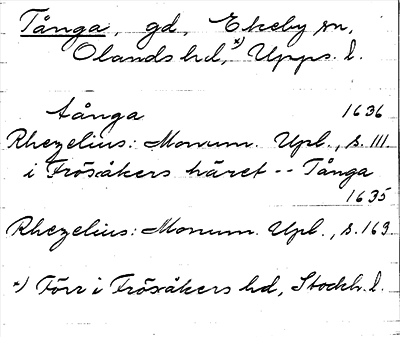 Tånga, gd, Ekeby sn,
Olands hd,*) Upps. l.
tånga 1636
Rhezelius: Monum. Upl., s. 111
i Frösåkers häret -- Tånga
1635
Rhezelius: Monum. Upl., s. 169
*) Förr i Frösåkers hd, Stockh. l.